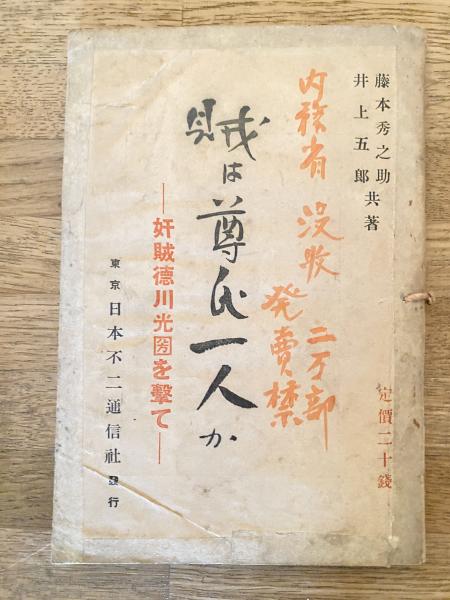 藤本秀之助
井上五郎共著
定價二十錢
内務省 没收 二万部
発賣禁
賊は尊氏一人か
―奸賊德川光圀を擊て―
東京 日本不二通信社 發行